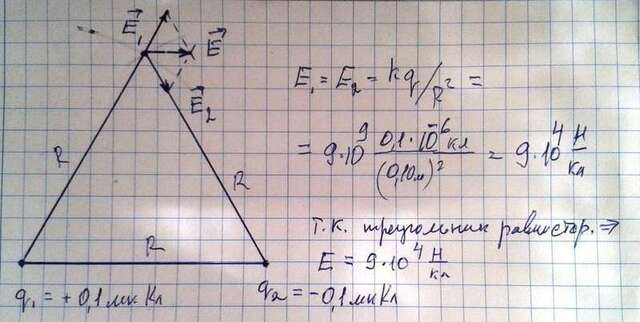 E⃗₁ E⃗
E⃗₂
R R
R
q₁ = +0,1 мкКл q₂ = −0,1 мкКл
E₁ = E₂ = kq/R² =
= 9·10⁹ 0,1·10⁻⁶ кл / (0,10м)² = 9·10⁴ Н/кл
Т.К. треугольник равностор. ⇒
E = 9·10⁴ Н/кл